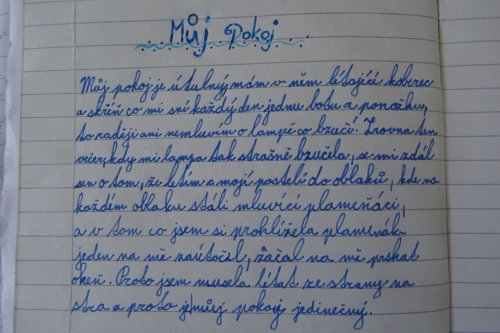 Můj Pokoj
Můj pokoj je útulný mám v něm létající koberec
a skříň co mi sní každý den jednu botu a ponožku,
to raději ani nemluvím o lampě co bzučí. Zrovna ten
večer, kdy mi lampa tak strašně bzučela, se mi zdál
sen o tom, že letím s mojí postelí do oblaků, kde na
každém oblaku stáli mluvící plameňáci,
a v tom co jsem si prohlížela plameňák
jeden na mě zaútočil, začal na mě prskat
oheň. Proto jsem musela létat ze strany na
stra a proto je můj pokoj jedinečný.